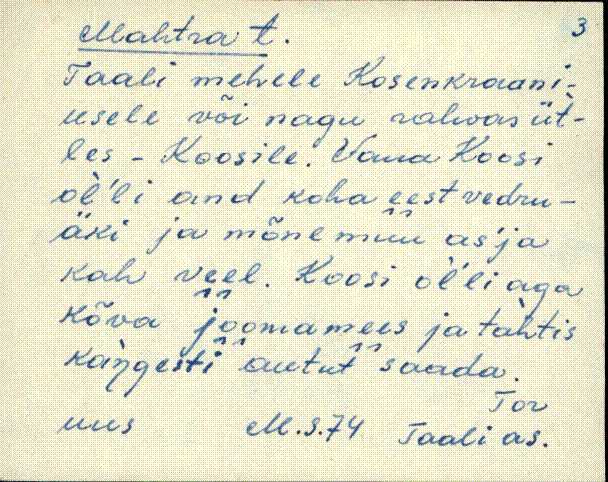 3
Mahtra t.
Taali mehele Kosenkraani-
usele või nagu rahvas üt-
les - Koosile. Vana Koosi
òĺli and koha eest vedru-
äki ja mõne muu as'ja
kah veel. Koosi òĺli aga
kõva joomamees ja tahtis
kaņgesti autut saada.
Tor
uus M.S.74 Taali as.